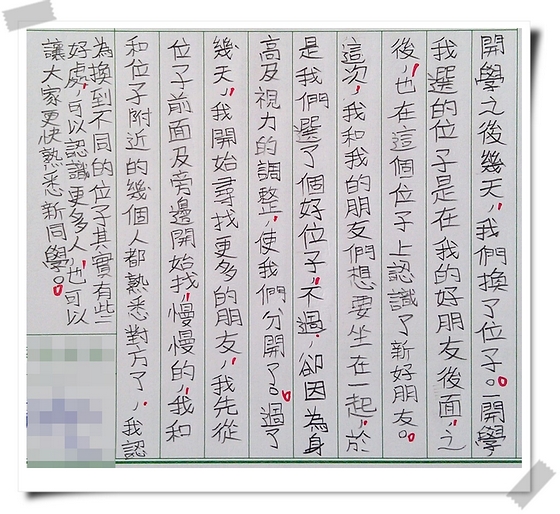 開學之後幾天，我們換了位子。一開學
我選的位子是在我的好朋友後面，之
後，也在這個位子上認識了新好朋友。
這次，我和我的朋友們想要坐在一起，於
是我們選了個好位子，不過，卻因為身
高及視力的調整，使我們分開了。過了
幾天，我開始尋找更多的朋友，我先從
位子前面及旁邊開始找，慢慢的，我和
和位子附近的幾個人都熟悉對方了，我認
為換到不同的位子其實有些
好處，可以認識更多人，也可以
讓大家更快熟悉新同學。